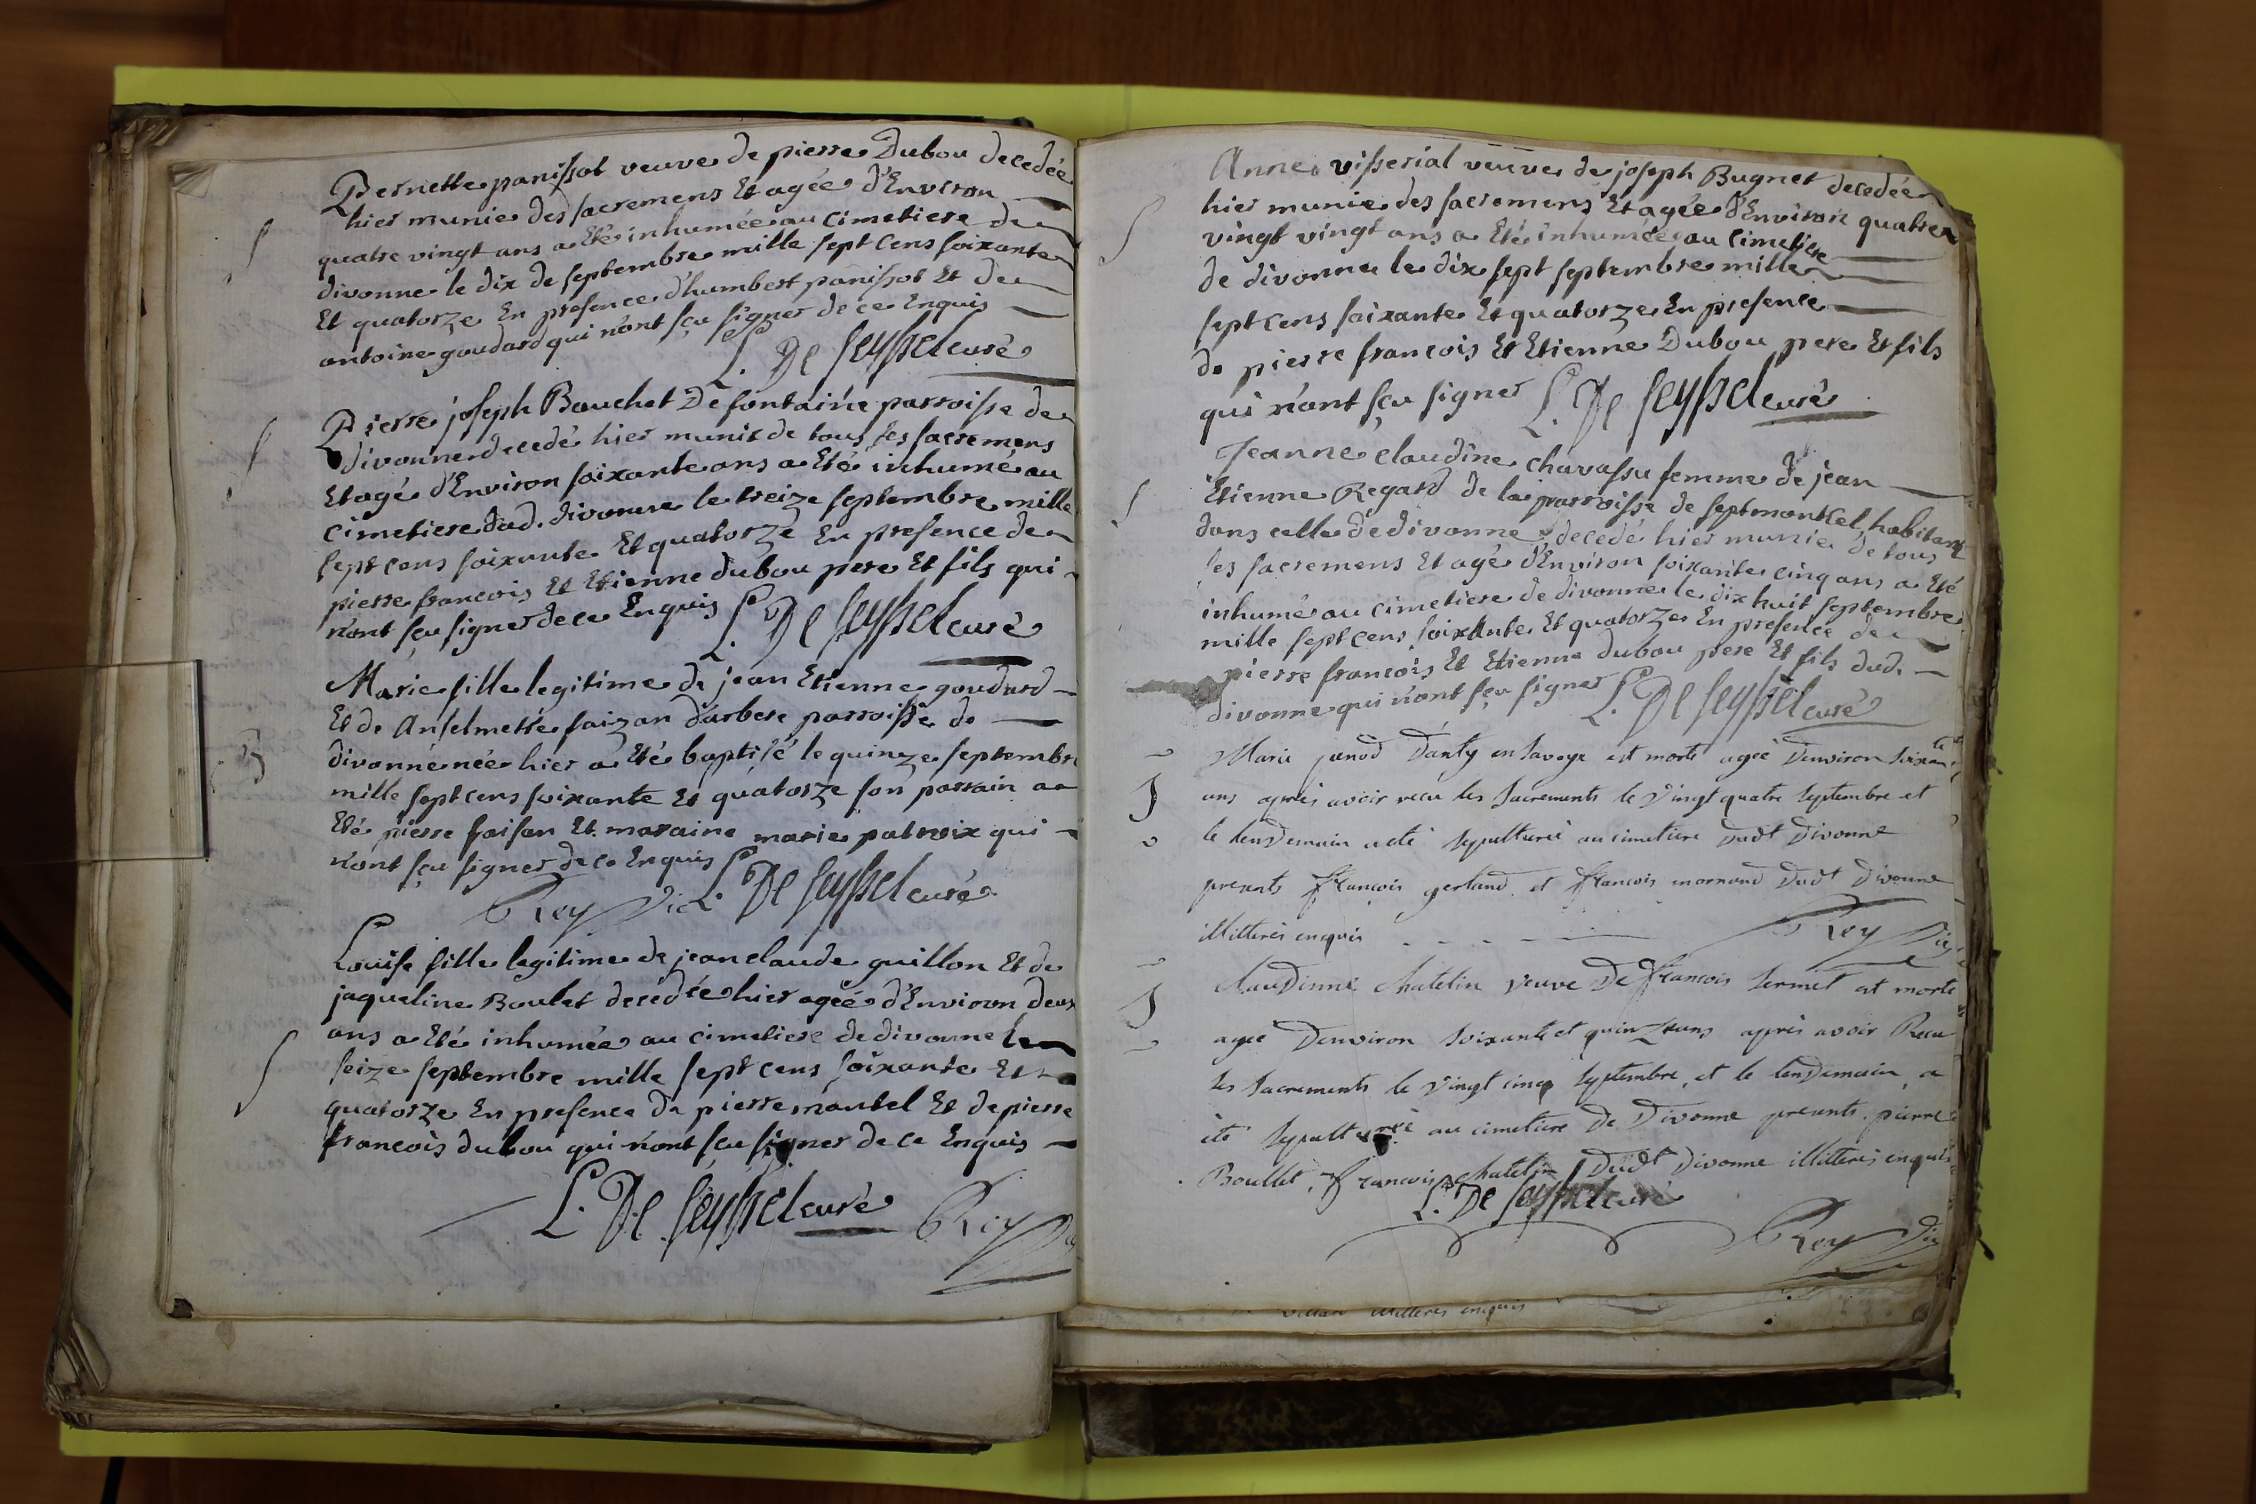 S
Pernette panissot veuve de pierre Dubou decedée
hier munie des sacremens Et agée d'Environ
quatre vingt ans a Eté inhumée au cimetiere de
divonne le dix de septembre mille sept cens soixante
Et quatorze En presence d'humbert panissot Et de
antoine goudard qui n'ont sçu signer de ce Enquis
L. De seyssel curé
S
Pierre joseph Bouchet De fontaine parroisse de
divonne decedé hier munit de tous ses sacremens
Et agé d'Environ soixante ans a Eté inhumé au
cimetiere dud. divonne le treize septembre mille
sept cens soixante Et quatorze En presence de
pierre francois Et Etienne dubou pere Et fils qui
n'ont sçu signer de ce Enquis L. De seyssel curé
B
Marie fille legitime de jean Etienne goudard
Et de Anselmette faizan d'arbere parroisse de
divonne née hier a Eté baptisé le quinze septembre
mille sept cens soixante Et quatorze son parrain a
Eté pierre faisan Et maraine marie patroix qui
n'ont sçu signer de ce Enquis L. De seyssel curé
Rey Vic
Louise fille legitime de jean claude guillon Et de
jaqueline Boulet decedée hier agée d'Environ deux
ans a Eté inhumée au cimetiere de divonne le
S
seize septembre mille sept cens soixante Et
quatorze En presence de pierre mantel Et de pierre
francois dubou qui n'ont sçu signer de ce Enquis
L. De seyssel curé Rey Vic
Anne visserial veuve de joseph Bugnet decedée
S
hier munie des sacremens Et agée d'Environ quatre
vingt vingt ans a Eté inhumée au cimetiere
de divonne le dix sept septembre mille
sept cens soixante Et quatorze En presence
de pierre francois Et Etienne Dubou pere Et fils
qui n'ont sçu signer L. De seyssel curé
Jeanne claudine chavassu femme de jean
S
Etienne Regard de la parroisse de septmontcel, habitant
dans celle de divonne decedé hier munie de tous
ses sacremens Et agé d'Environ soixante cinq ans a Eté
inhumé au cimetiere de divonne le dix huit septembre
mille sept cens soixante Et quatorze En presence de
pierre francois Et Etienne dubou pere Et fils dud.
divonne qui n'ont sçu signer L. De seyssel curé
Marie junod Danty en Savoye est morte agée Denviron soixante
S
ans après avoir reçu les Sacrements le Vingt quatre Septembre et
le lendemain a eté Sepulturée au cimetiere Dudt Divonne
presents François gerland et François mornand Dudt Divonne
illitterés enquis Rey Vic
S
Claudinne Chatelin veuve De François Sermet est morte
agée Denviron Soixante et quinze ans après avoir Recu
les Sacrements le Vingt cinq Septembre, et le lendemain, a
été Sepulturée au cimetiere De Divonne presents pierre
Boullet, François chatelin Dudt Divonne illitterés enquis
L. De Seyssel curé
Rey Vic
illitterés enquis